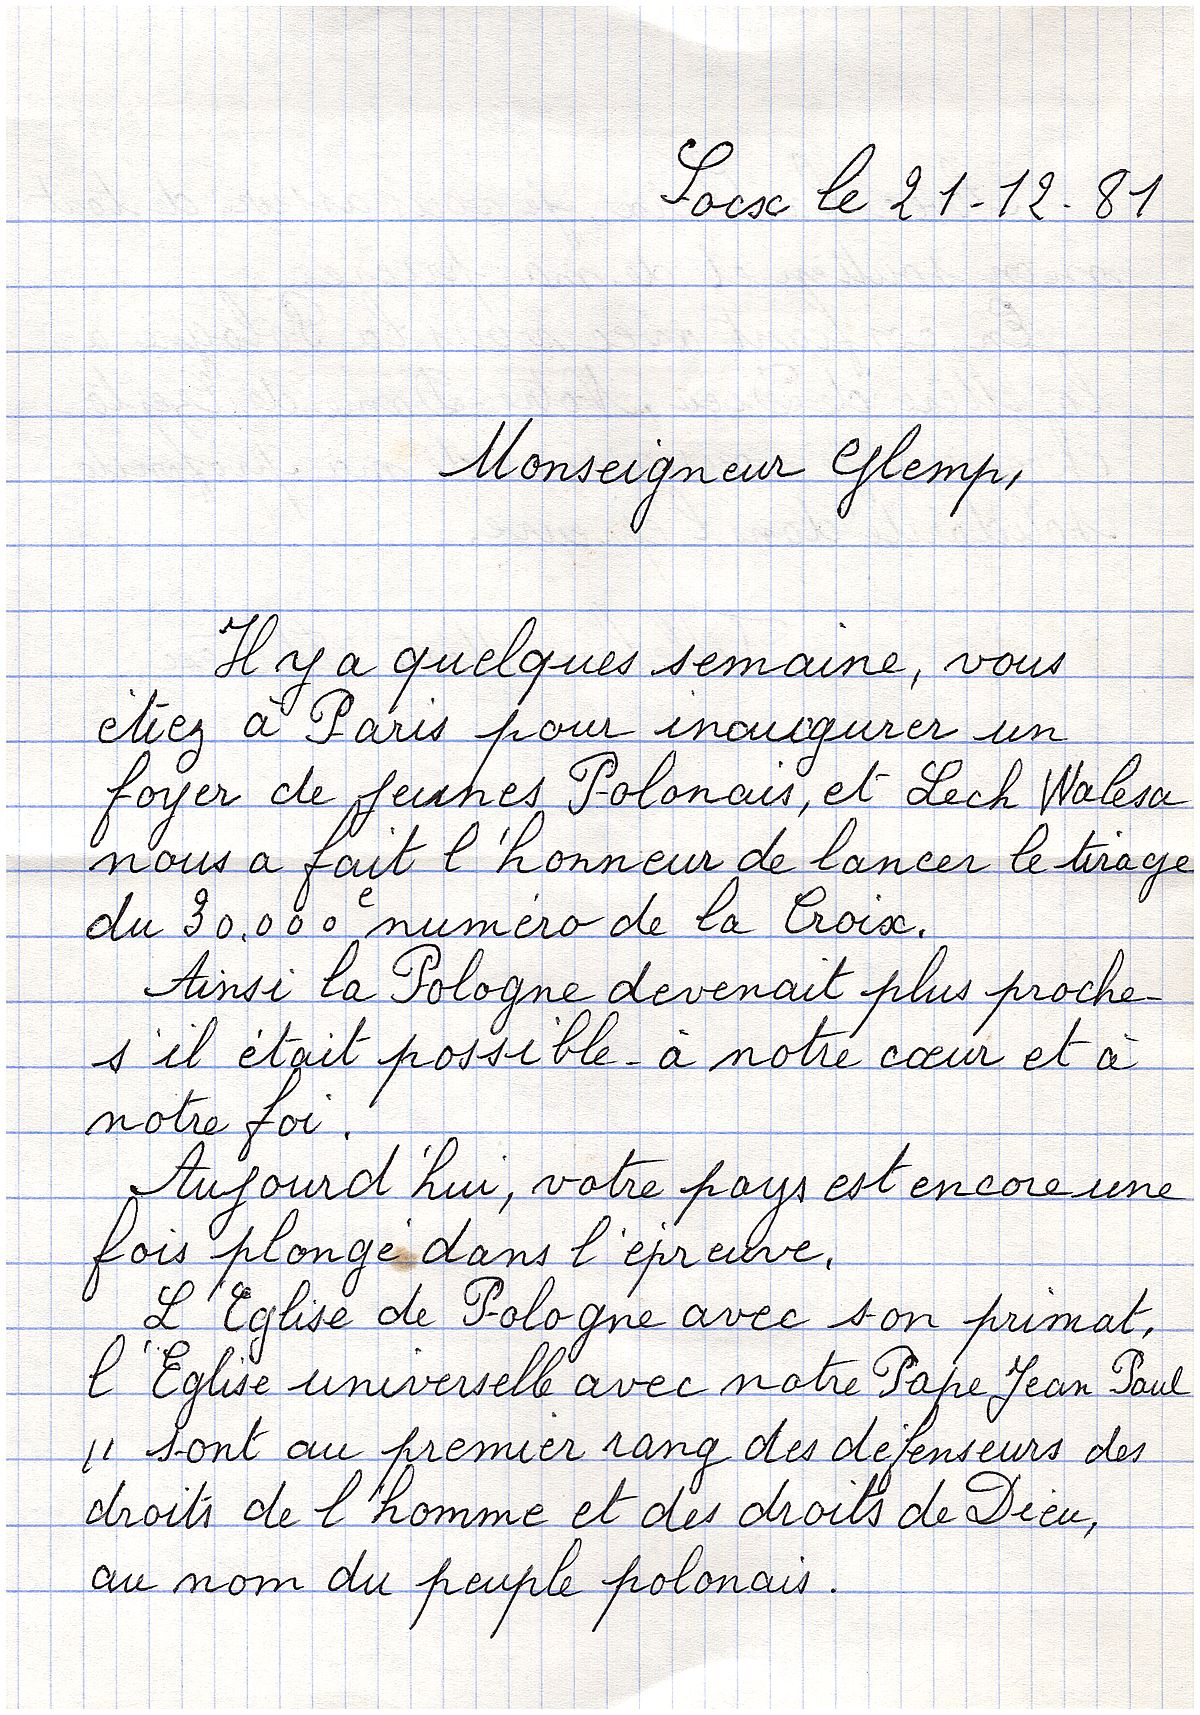 Socx le 21-12-81
Monseigneur Glemp,
Il y a quelques semaine, vous
étiez à Paris pour inaugurer un
foyer de jeunes Polonais, et Lech Walesa
nous a fait l'honneur de lancer le tirage
du 30.000e numéro de la Croix.
Ainsi la Pologne devenait plus proche-
s'il était possible- à notre cœur et à
notre foi.
Aujourd'hui, votre pays est encore une
fois plongé dans l'épreuve.
L'Eglise de Pologne avec son primat,
l'Eglise universelle avec notre Pape Jean Paul
II sont au premier rang des défenseurs des
droits de l'homme et des droits de Dieu,
au nom du peuple polonais.